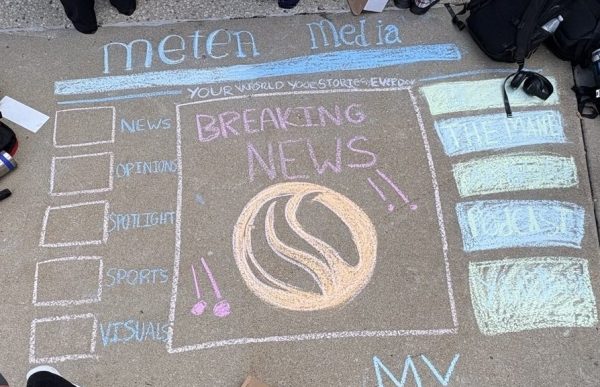 meten media
YOUR WORLD YOUR STORIES EVERYDAY
BREAKING
NEWS
!!
!!
NEWS
OPINIONS
SPOTLIGHT
SPORTS
VISUALS
THE MANE
PODCAST
MV